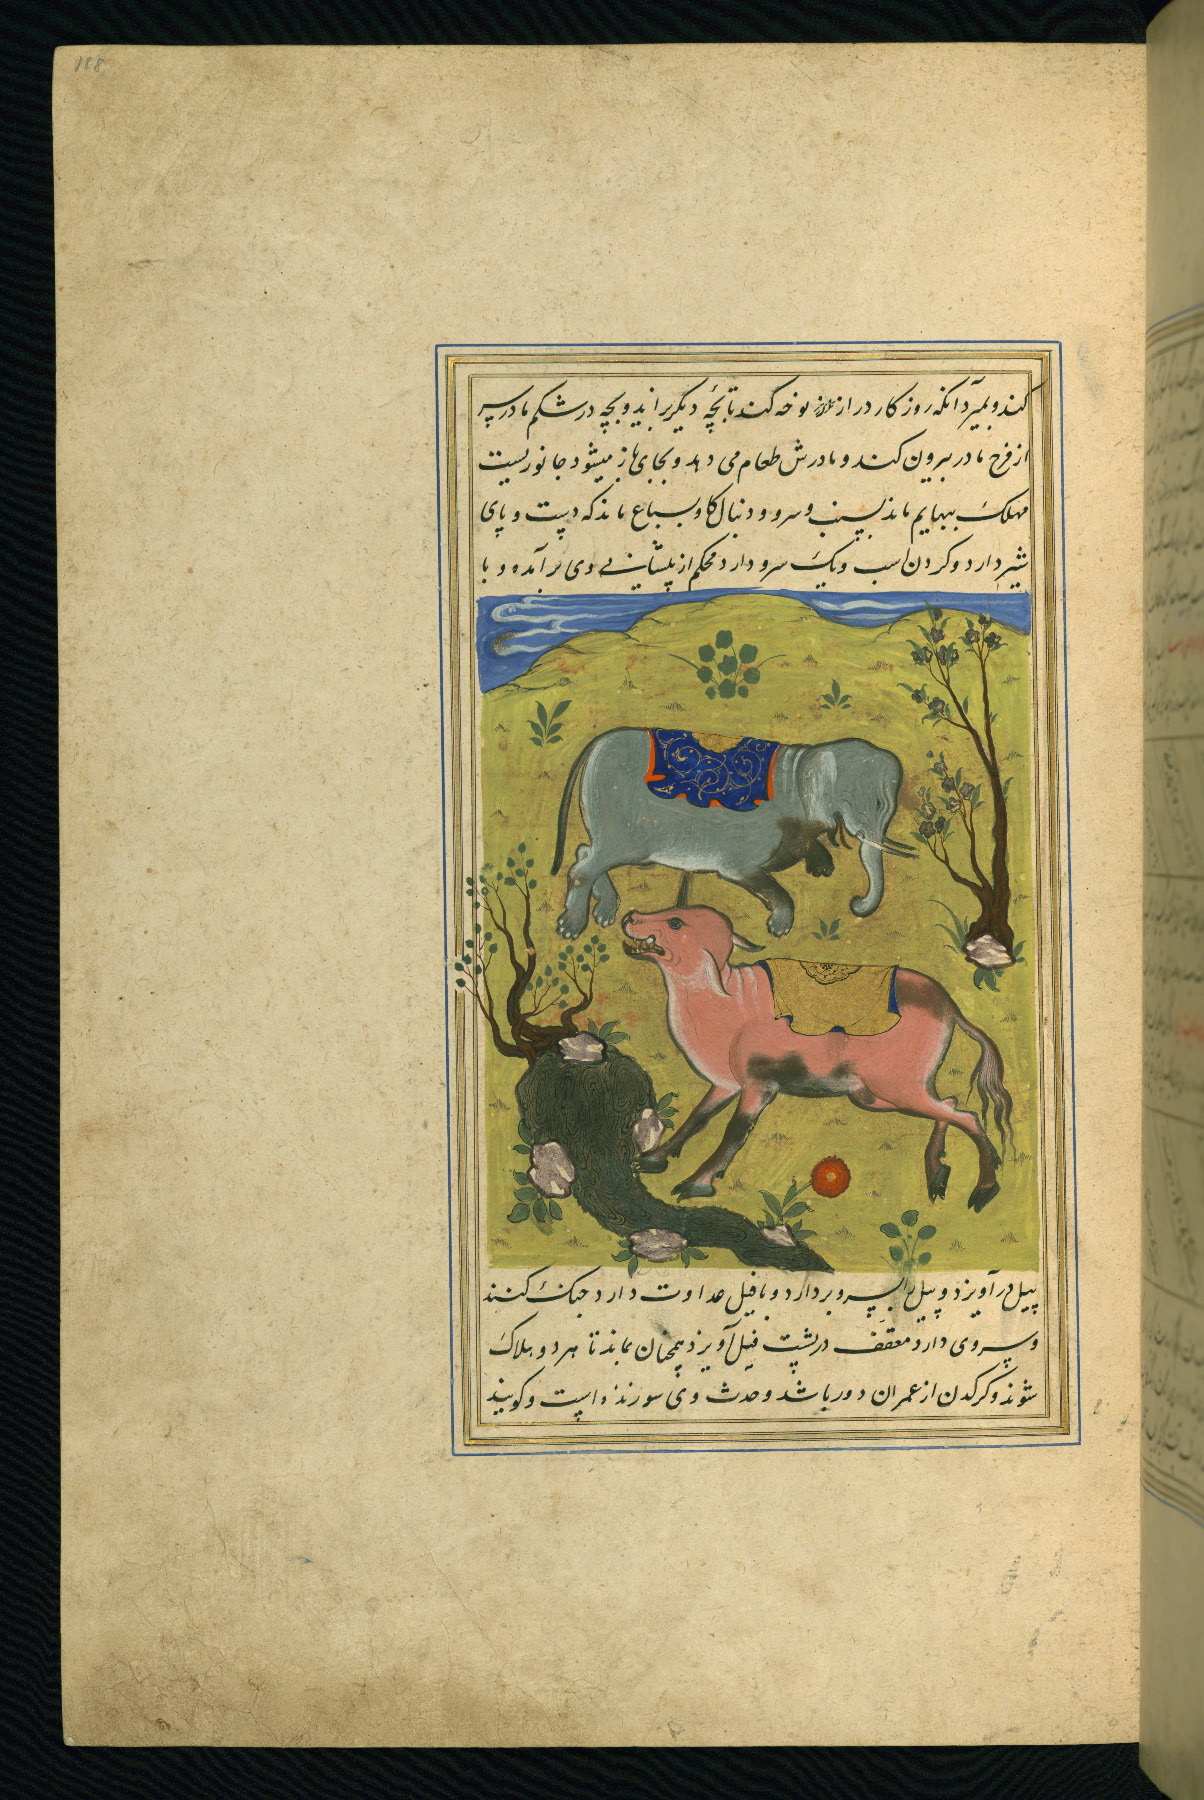 188
کند و بمیرد آنکه روزکار دراز نوحه کند تا بچهٔ دیگر بزاید و بچه در شکم مادر سر
از فرج مادر بیرون کند و مادرش طعام می دهد و بجای باز میشود جانوریست
مهلک ببهایم ماند و سرو و دنبال کاو بسباع ماند که دست و پای
شیر دارد و کردن اسب و یک سرو دارد محکم از پیشانی وی برآمده و با
پیل درآویزد و پیل را بسرو بردارد و با فیل عداوت دارد جنک کنند
وسروی دارد معقف در پشت فیل آویزد همچنان بماند تا هر دو هلاک
شوند و کرکدن از عمران دور باشد و حدث وی سوزنده است و کویند